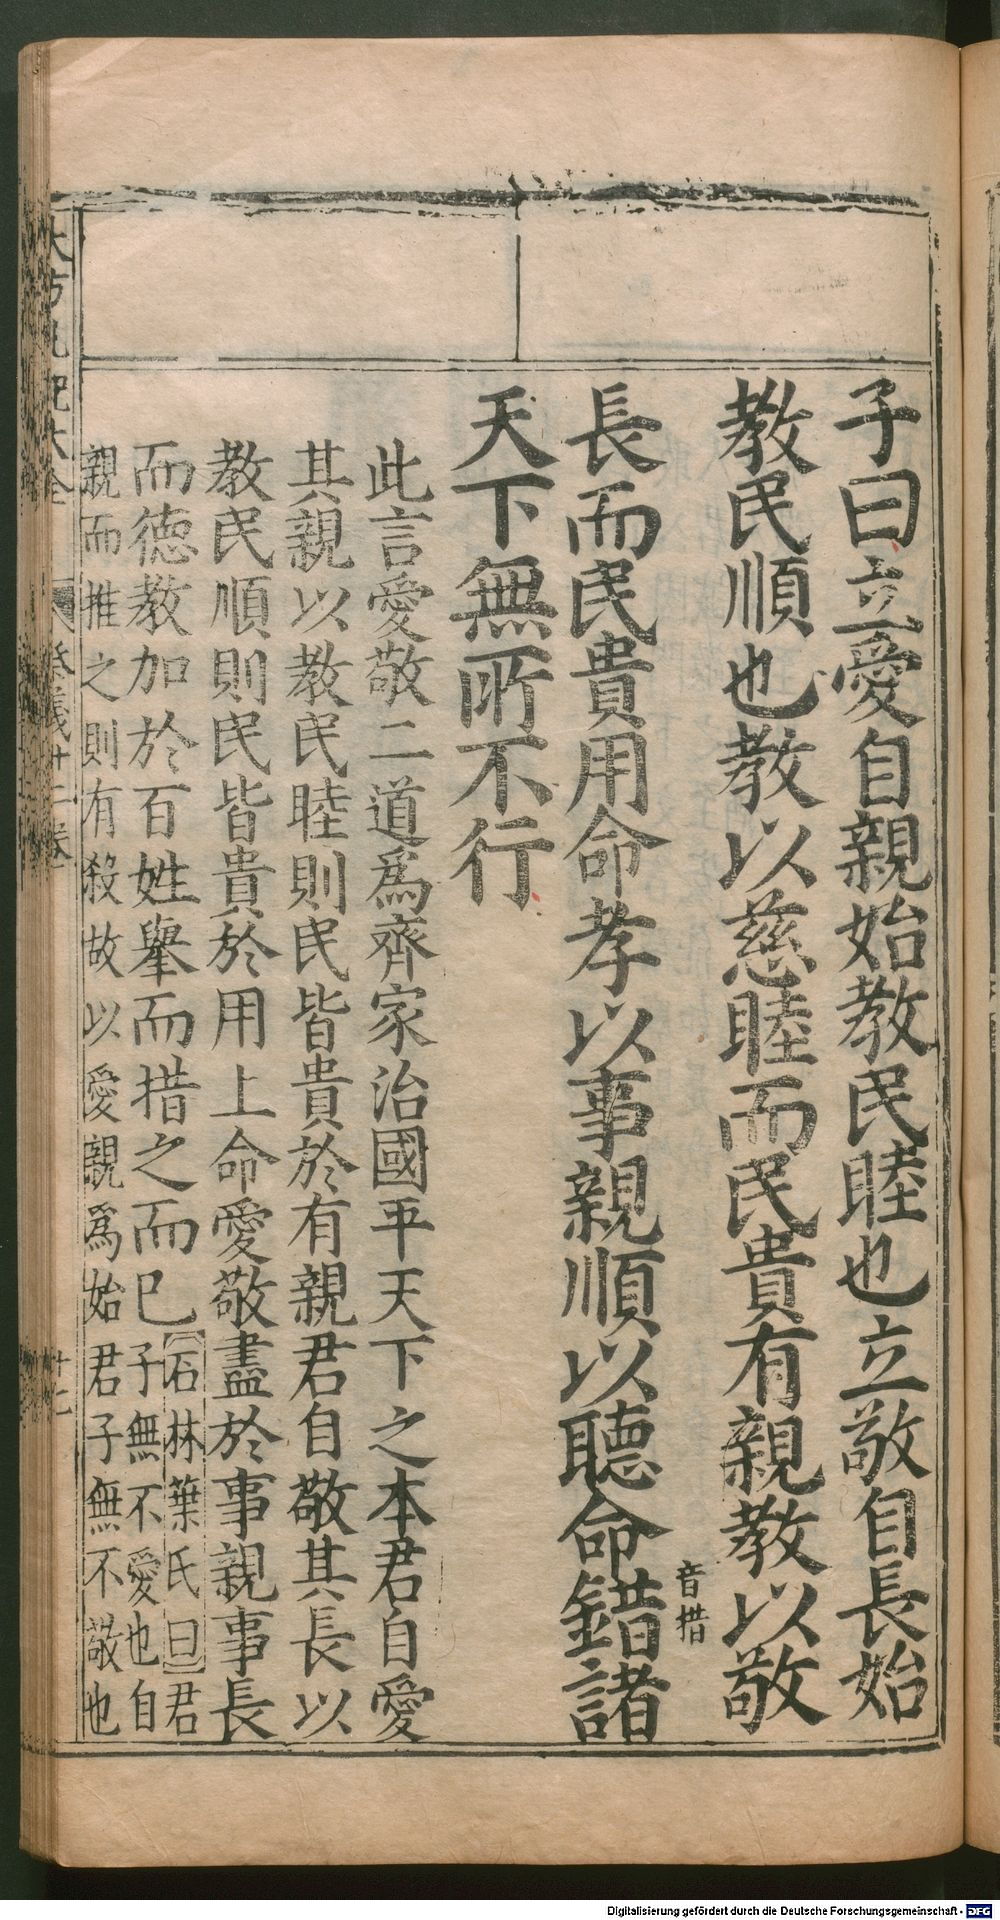 子曰立愛自親始教民睦也立敬自長始
教民順也教以慈睦而民貴有親教以敬
長而民貴用命孝以事親順以聽命錯諸
音措
天下無所不行
此言愛敬二道爲齊家治國平天下之本君自愛
其親以教民睦則民皆貴於有親君自敬其長以
教民順則民皆貴於用上命愛敬盡於事親事長
而德教加於百姓舉而措之而已
【石林葉氏曰】君
子無不愛也自
親而推之則有殺故以愛親爲始君子無不敬也
Digitalisierung gefördert durch die Deutsche Forschungsgemeinschaft - DFG